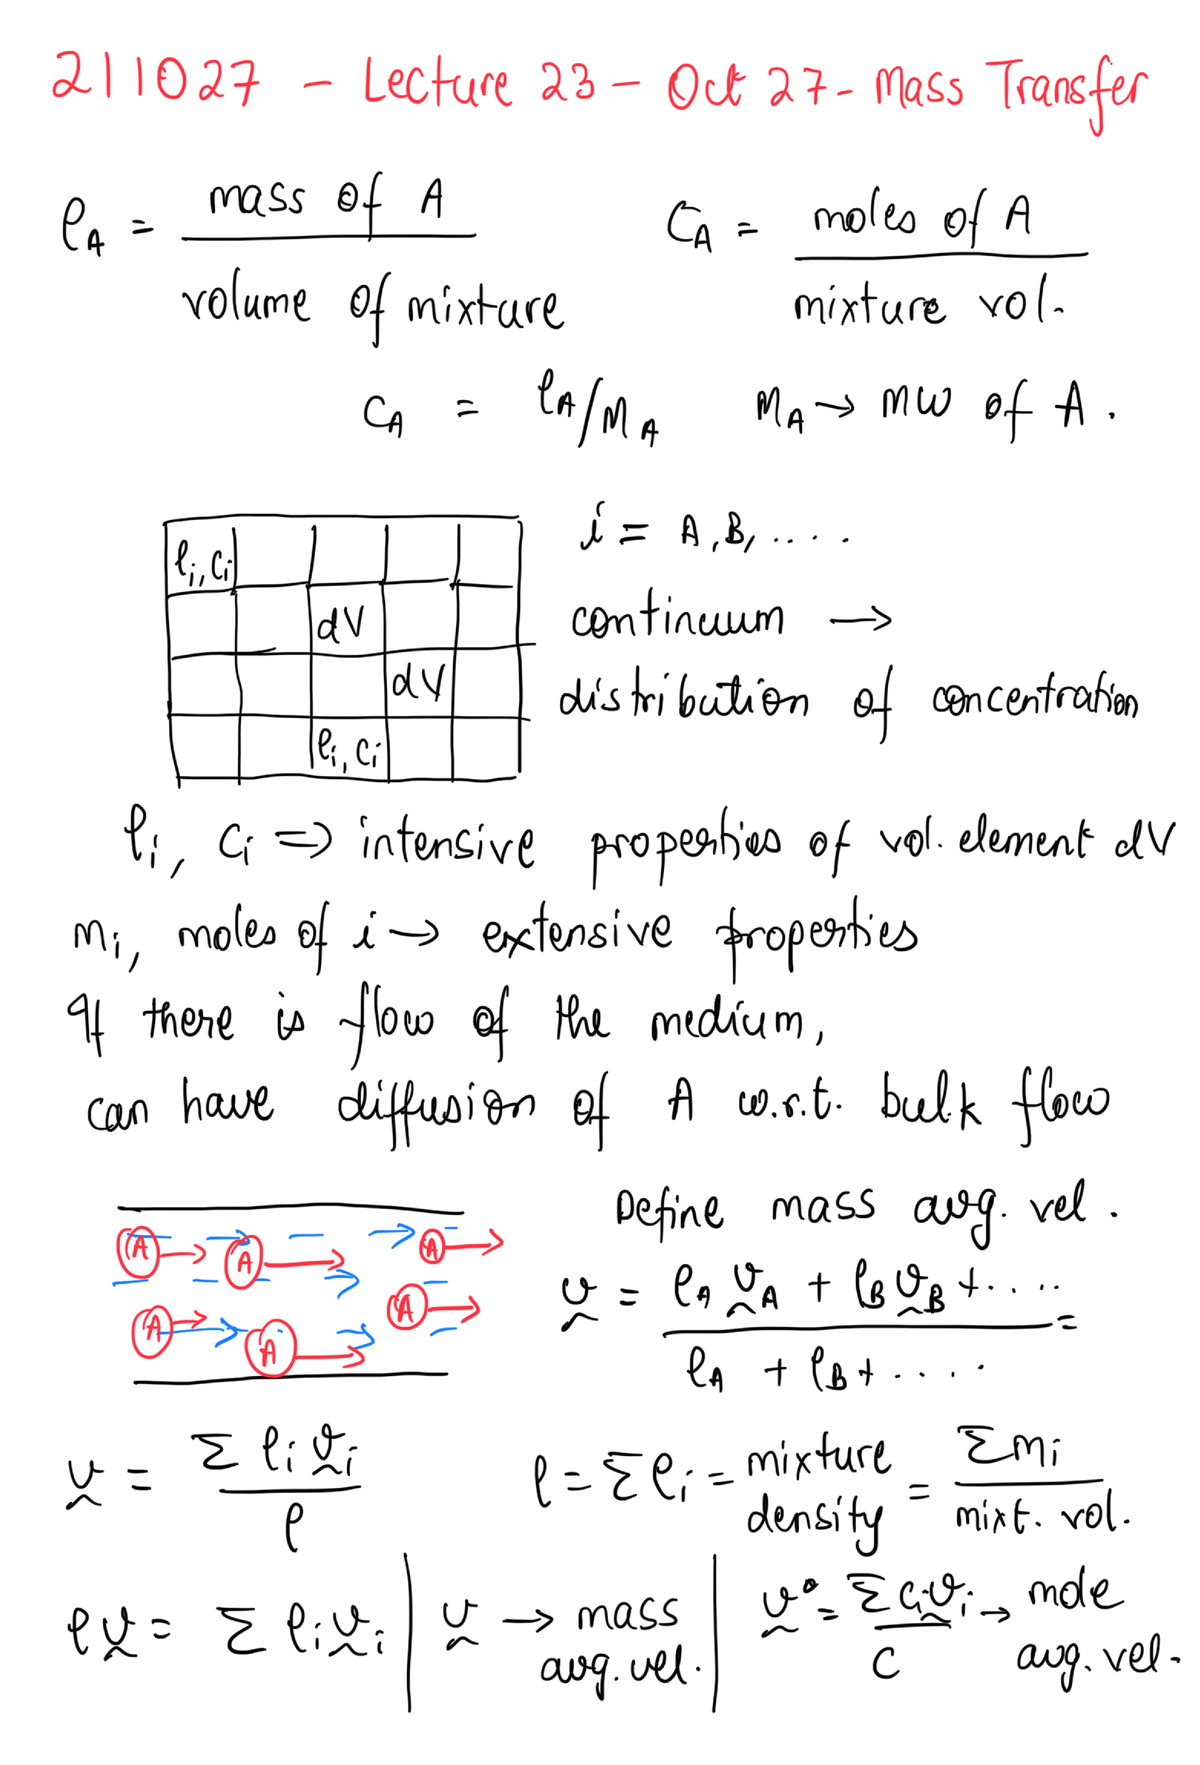 211027 - Lecture 23 - Oct 27 - Mass Transfer
ρ_A = mass of A / volume of mixture    C_A = moles of A / mixture vol.
C_A = ρ_A/M_A    M_A → MW of A.
ρ_i, C_i
i = A, B, ....
dV
continuum →
dV
distribution of concentration
ρ_i, C_i
ρ_i, C_i ⇒ intensive properties of vol. element dV
m_i, moles of i → extensive properties
If there is flow of the medium,
can have diffusion of A w.r.t. bulk flow
Define mass avg. vel.
A A A
A A A
v = ρ_A v_A + ρ_B v_B + .... / ρ_A + ρ_B + .... =
v = Σ ρ_i v_i / ρ    ρ = Σρ_i = mixture density = Σm_i / mixt. vol.
ρv = Σ ρ_i v_i | v → mass avg. vel. | v° = Σ C_i v_i / C → mole avg. vel.